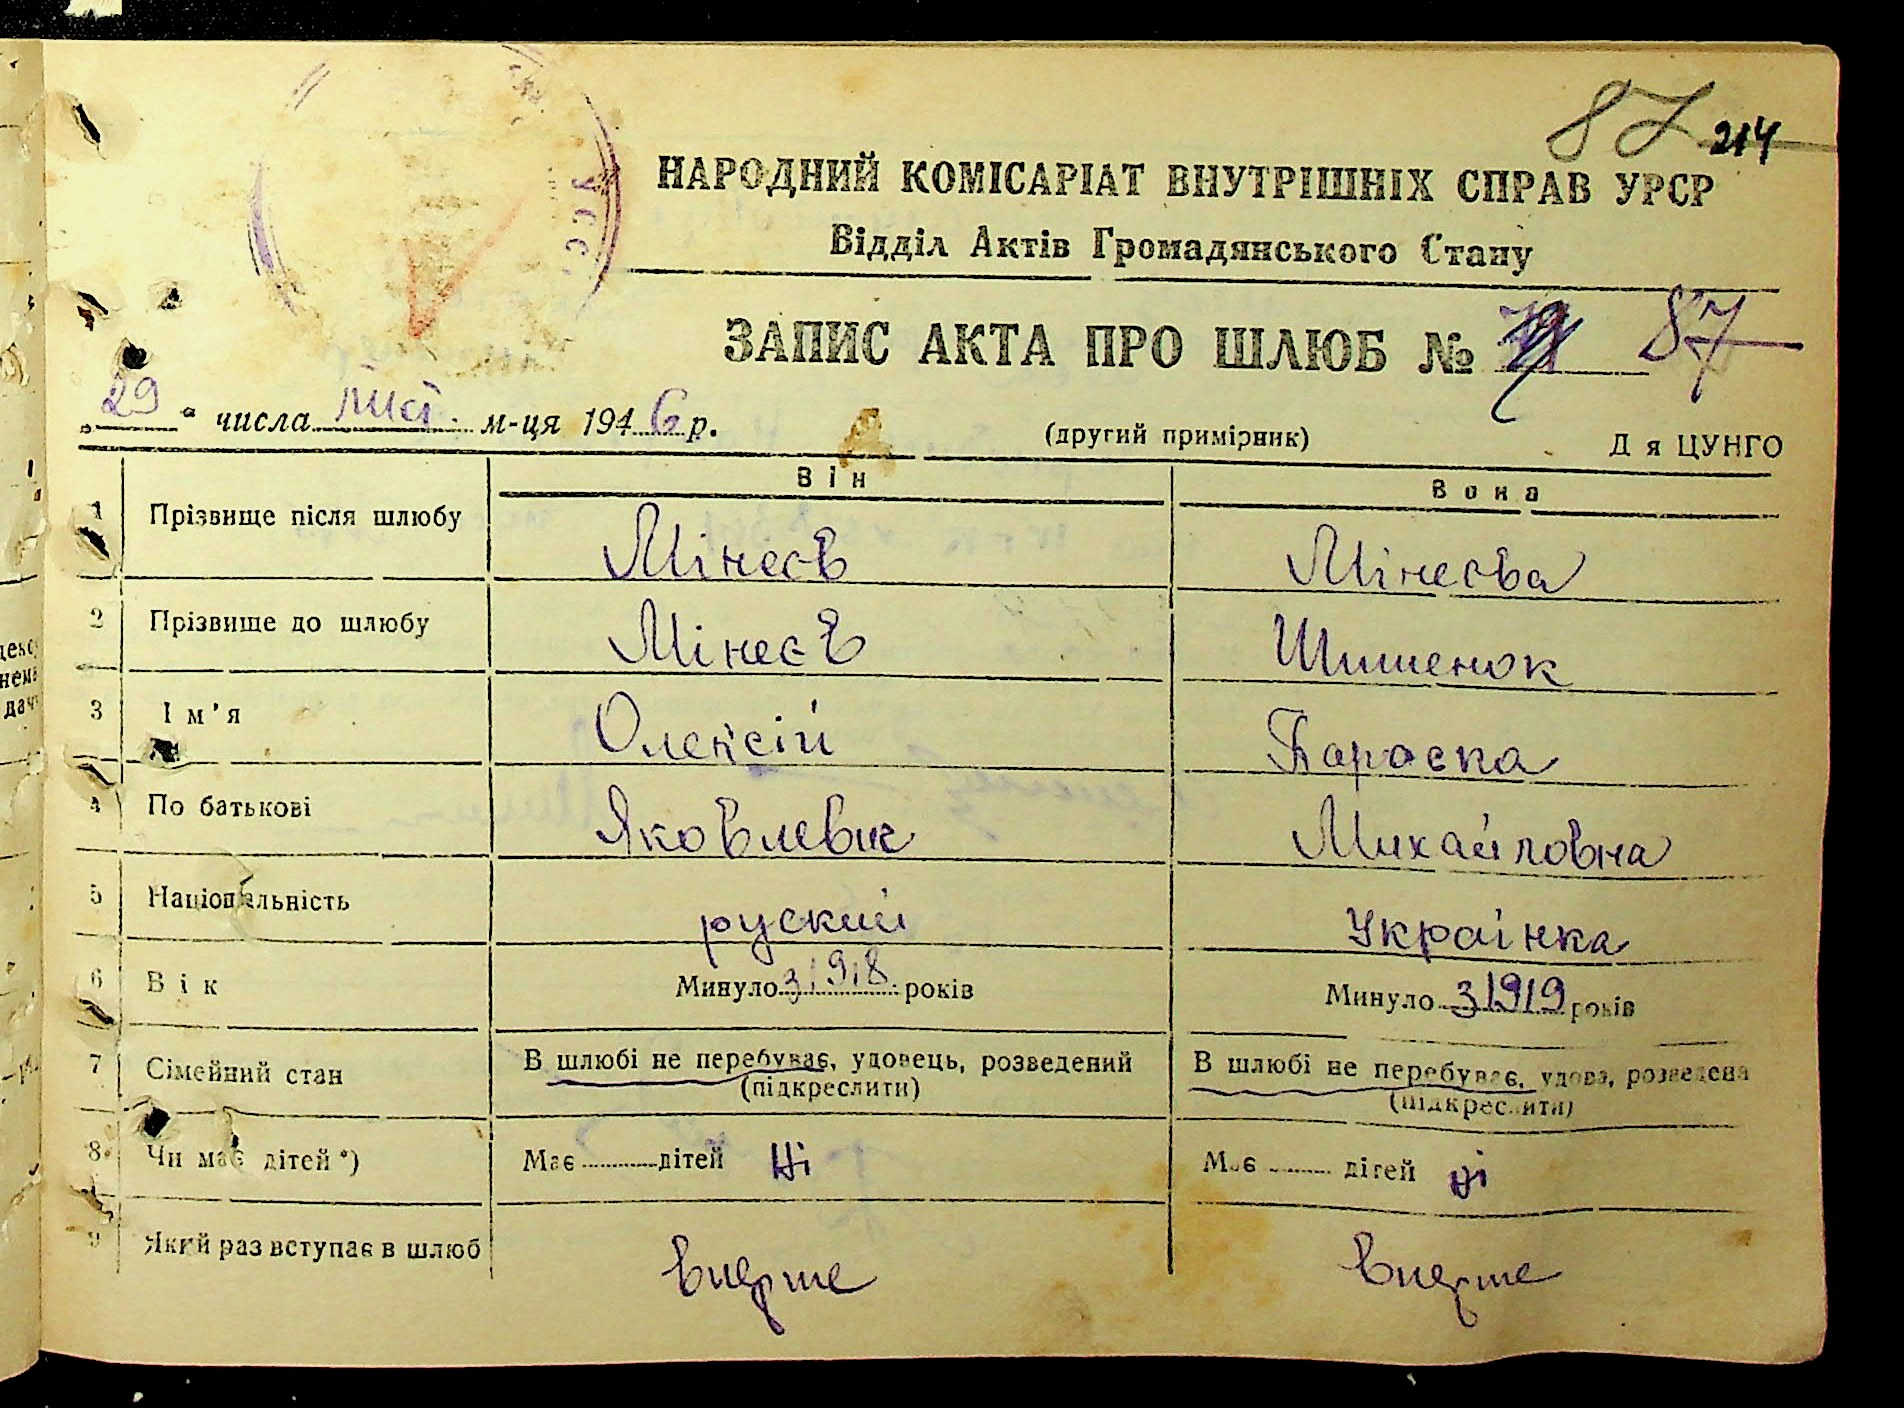 87 214
НАРОДНИЙ КОМІСАРІАТ ВНУТРІШНІХ СПРАВ УРСР
Відділ Актів Громадянського Стану
ЗАПИС АКТА ПРО ШЛЮБ № 87
„29“ числа лист. м-ця 1946 р.
(другий примірник) Д я ЦУНГО
Він Вона
1 Прізвище після шлюбу Мінеєв Мінеєва
2 Прізвище до шлюбу Мінеєв Шишенюк
3 Ім'я Олексій Параска
4 По батькові Яковлевич Михайловна
5 Національність руский Українка
6 Вік Минуло з 1918 років Минуло з 1919 років
7 Сімейний стан В шлюбі не перебуває, удовець, розведений В шлюбі не перебуває, удова, розведена
(підкреслити) (підкреслити)
8 Чи має дітей*) Має дітей ні Має дітей ні
9 Який раз вступає в шлюб вперше вперше
УСС